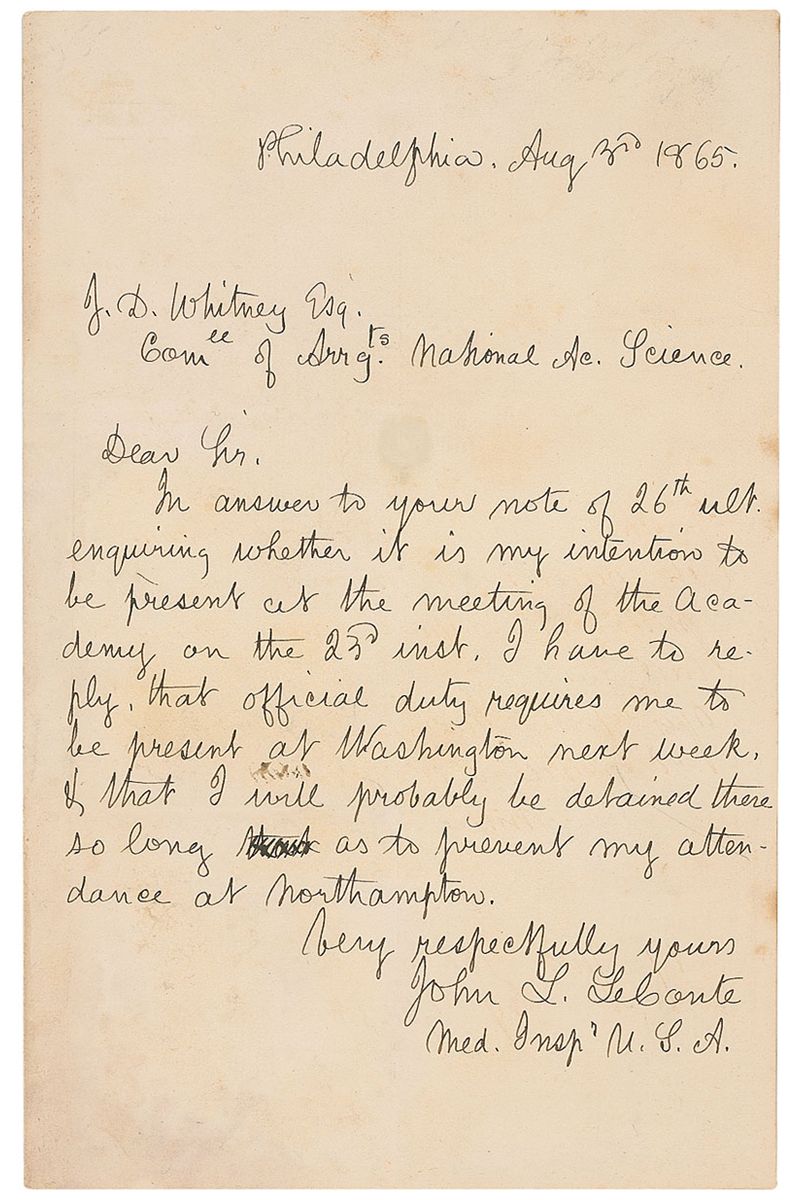 Philadelphia. Aug 3rd 1865.
J. D. Whitney Esq.
Comee of Arrgts. National Ac. Science.
Dear Sir.
In answer to your note of 26th ult.
enquiring whether it is my intention to
be present at the meeting of the Aca-
demy on the 23d inst. I have to re-
ply, that official duty requires me to
be present at Washington next week,
& that I will probably be detained there
so long as to prevent my atten-
dance at Northampton.
Very respectfully yours
John L. LeConte
Med. Inspr U. S. A.